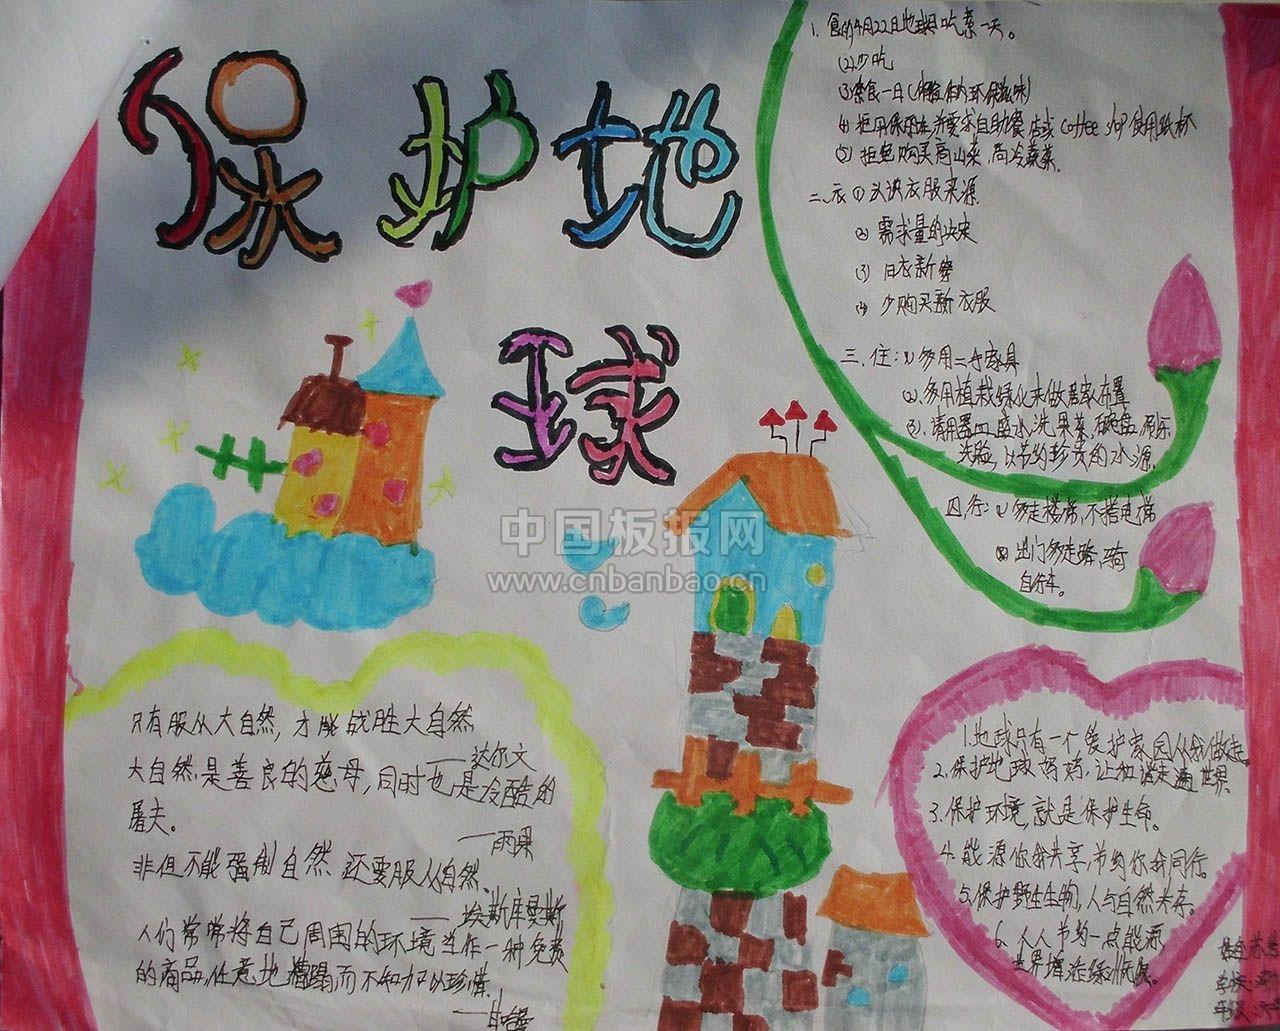 保护地
球
1. 食的4月22日地球日吃素一天。
(2)少吃
(3)素食一日
(4) 自助餐店或 Coffee shop 使用纸杯
(5) 拒绝购买高山菜,高冷蔬菜.
二.衣 (1) 认识衣服来源
(2) 需求量的决定
(3) 旧衣新穿
(4) 少购买新衣服
三.住:(1)多用二手家具
(2)多用植栽绿化来做居家布置
(3)请用器皿盛水洗果菜
洗脸,以节约珍贵的水源.
四.行:(1)多走楼梯,不搭电梯
(2)出门多走路,骑
自行车。
中国板报网
www.cnbanbao.cn
只有服从大自然,才能战胜大自然
——达尔文
大自然是善良的慈母,同时也是冷酷的
屠夫。
——雨果
非但不能强制自然 还要服从自然.
——埃斯库罗斯
人们常常将自己周围的环境当作一种免费
的商品,任意地糟蹋而不知加以珍惜.
——甘哈曼
1.地球只有一个,爱护家园从我做起
2.保护地球妈妈,让和谐走遍世界
3.保护环境,就是保护生命。
4.能源你我共享,节约你我同行。
5.保护野生生物,人与自然共存。
6.人人节约一点能源
世界增添绿州
学校:
年级: